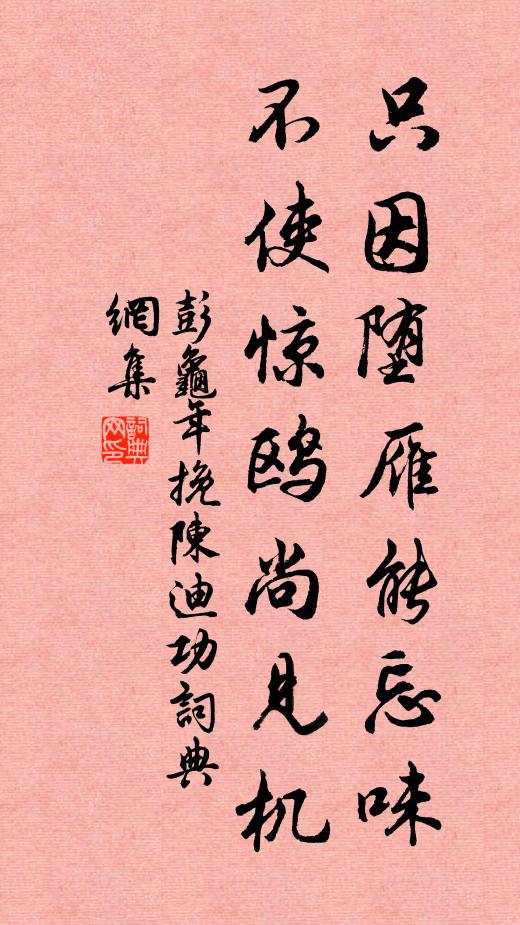 只因堕雁能忘味
不使惊鸥尚见机
彭龜年挽陳迪功詞典
網集
詞典
网印